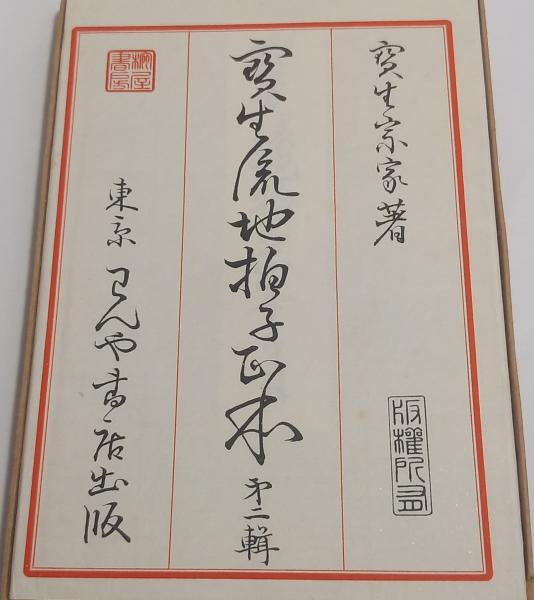 寶生宗家著
版權所有
寶生流地拍子正本 第二輯
椀屋書房
東京 わんや書店出版